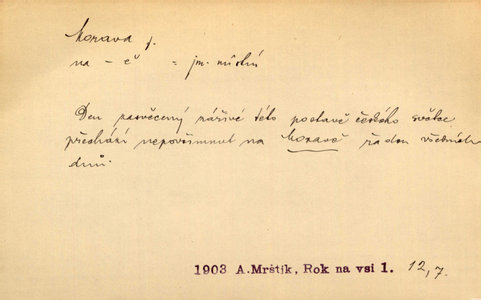 Morava f.
na - ě = jm. místní
Den zasvěcený zářivé této postavě českého světce
přechází nepovšimnut na Moravě řadou všedních
dnů.
1903 A. Mrštík, Rok na vsi 1. 12, 7.